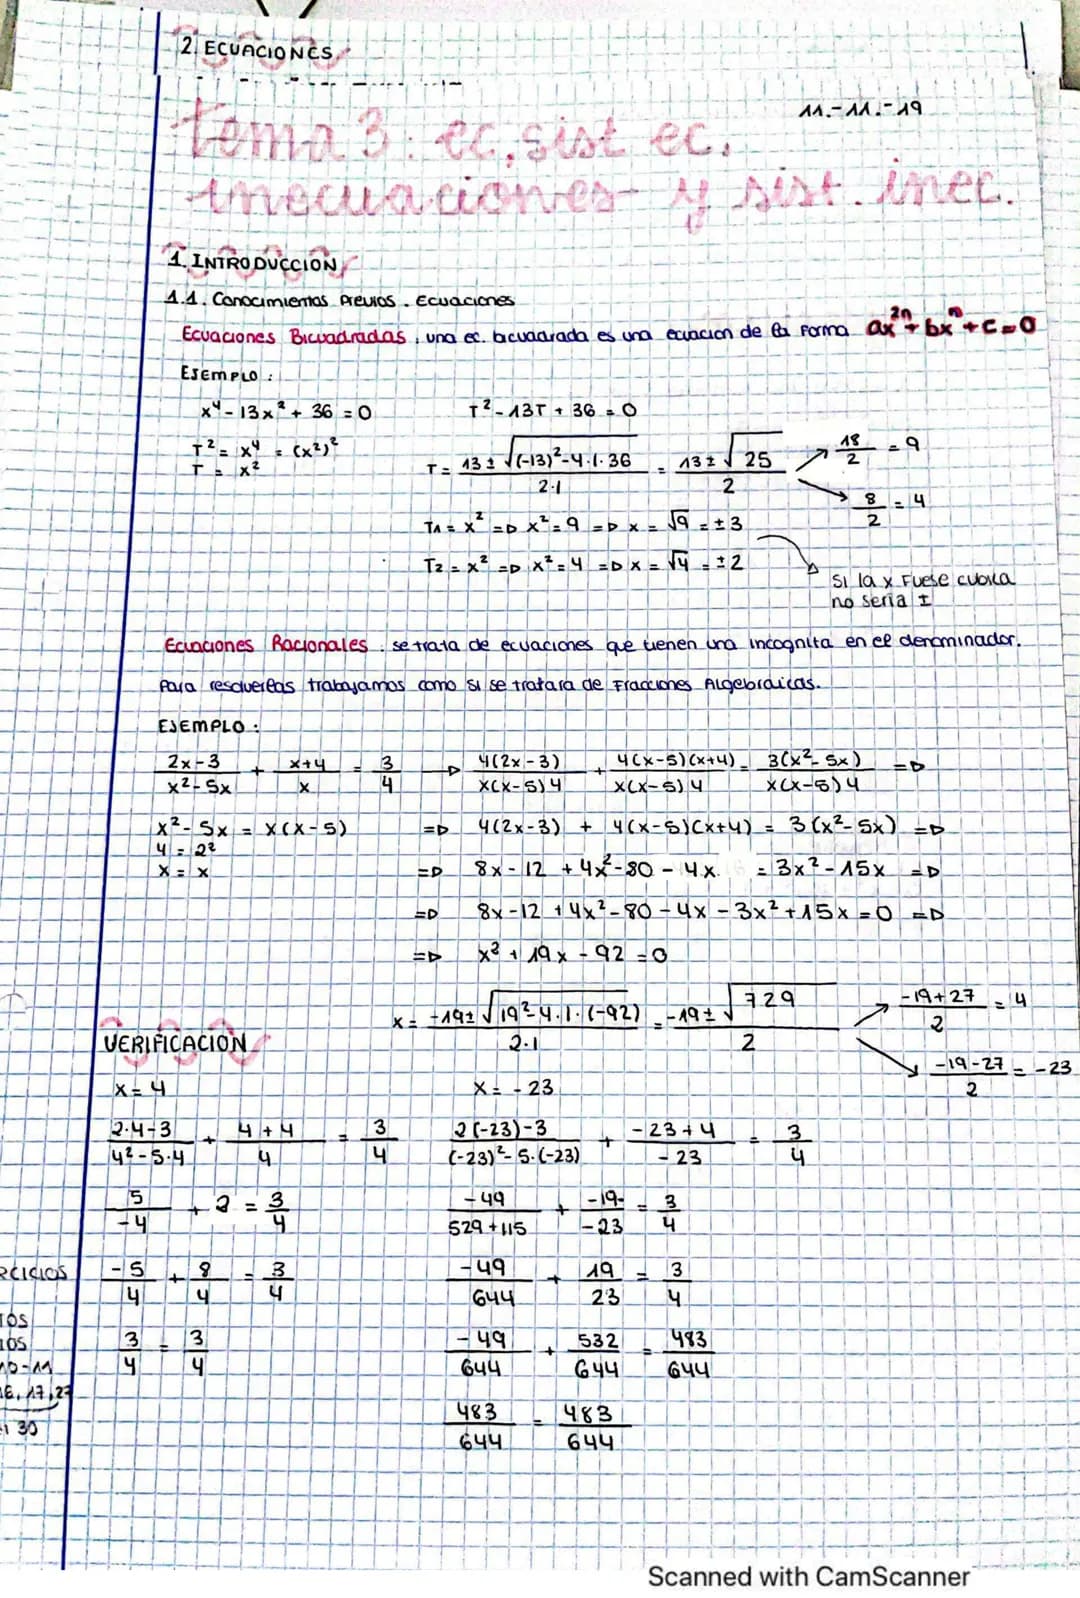 2. ECUACIONES
11.-11.-19
tema 3: ec, sist ec.
inecuaciones y sist. inec.
1. INTRODUCCION
1.1. Conocimientos Previos. Ecuaciones
Ecuaciones Bicuadradas, una ec. bicuadrada es una ecuacion de la Forma ax²ⁿ + bxⁿ + c = 0
EJEMPLO:
x⁴ - 13x² + 36 = 0   T² - 13T + 36 = 0
T² = x⁴ = (x²)²
T = x²
T = 13 ± √(-13)² - 4·1·36 / 2·1 = 13 ± √25 / 2 ↗ 18/2 = 9
↘ 8/2 = 4
T1 = x² => x² = 9 => x = √9 = ±3
T2 = x² => x² = 4 => x = √4 = ±2
Si la x Fuese cubica
no seria ±
Ecuaciones Racionales. se trata de ecuaciones que tienen una incognita en el denominador.
Para resolverlas trabajamos como si se tratara de Fracciones Algebraicas.
EJEMPLO:
2x-3/x²-5x + x+4/x = 3/4 → 4(2x-3)/x(x-5)4 + 4(x-5)(x+4)/x(x-5)4 = 3(x²-5x)/x(x-5)4 =>
x² - 5x = x(x-5)   => 4(2x-3) + 4(x-5)(x+4) = 3(x²-5x) =>
4 = 2²
x = x   => 8x - 12 + 4x² - 80 - 4x = 3x² - 15x =>
=> 8x - 12 + 4x² - 80 - 4x - 3x² + 15x = 0 =>
=> x² + 19x - 92 = 0
x = -19 ± √19² - 4·1·(-92) / 2·1 = -19 ± √729 / 2 ↗ -19+27/2 = 4
↘ -19-27/2 = -23
VERIFICACION
x = 4   x = -23
2·4-3/4²-5·4 + 4+4/4 = 3/4   2(-23)-3/(-23)²-5·(-23) + -23+4/-23 = 3/4
5/-4 + 2 = 3/4   -49/529+115 + -19/-23 = 3/4
-5/4 + 8/4 = 3/4   -49/644 + 19/23 = 3/4
3/4 = 3/4   -49/644 + 532/644 = 483/644
483/644 = 483/644
RCICIOS
10-11
30
Scanned with CamScanner